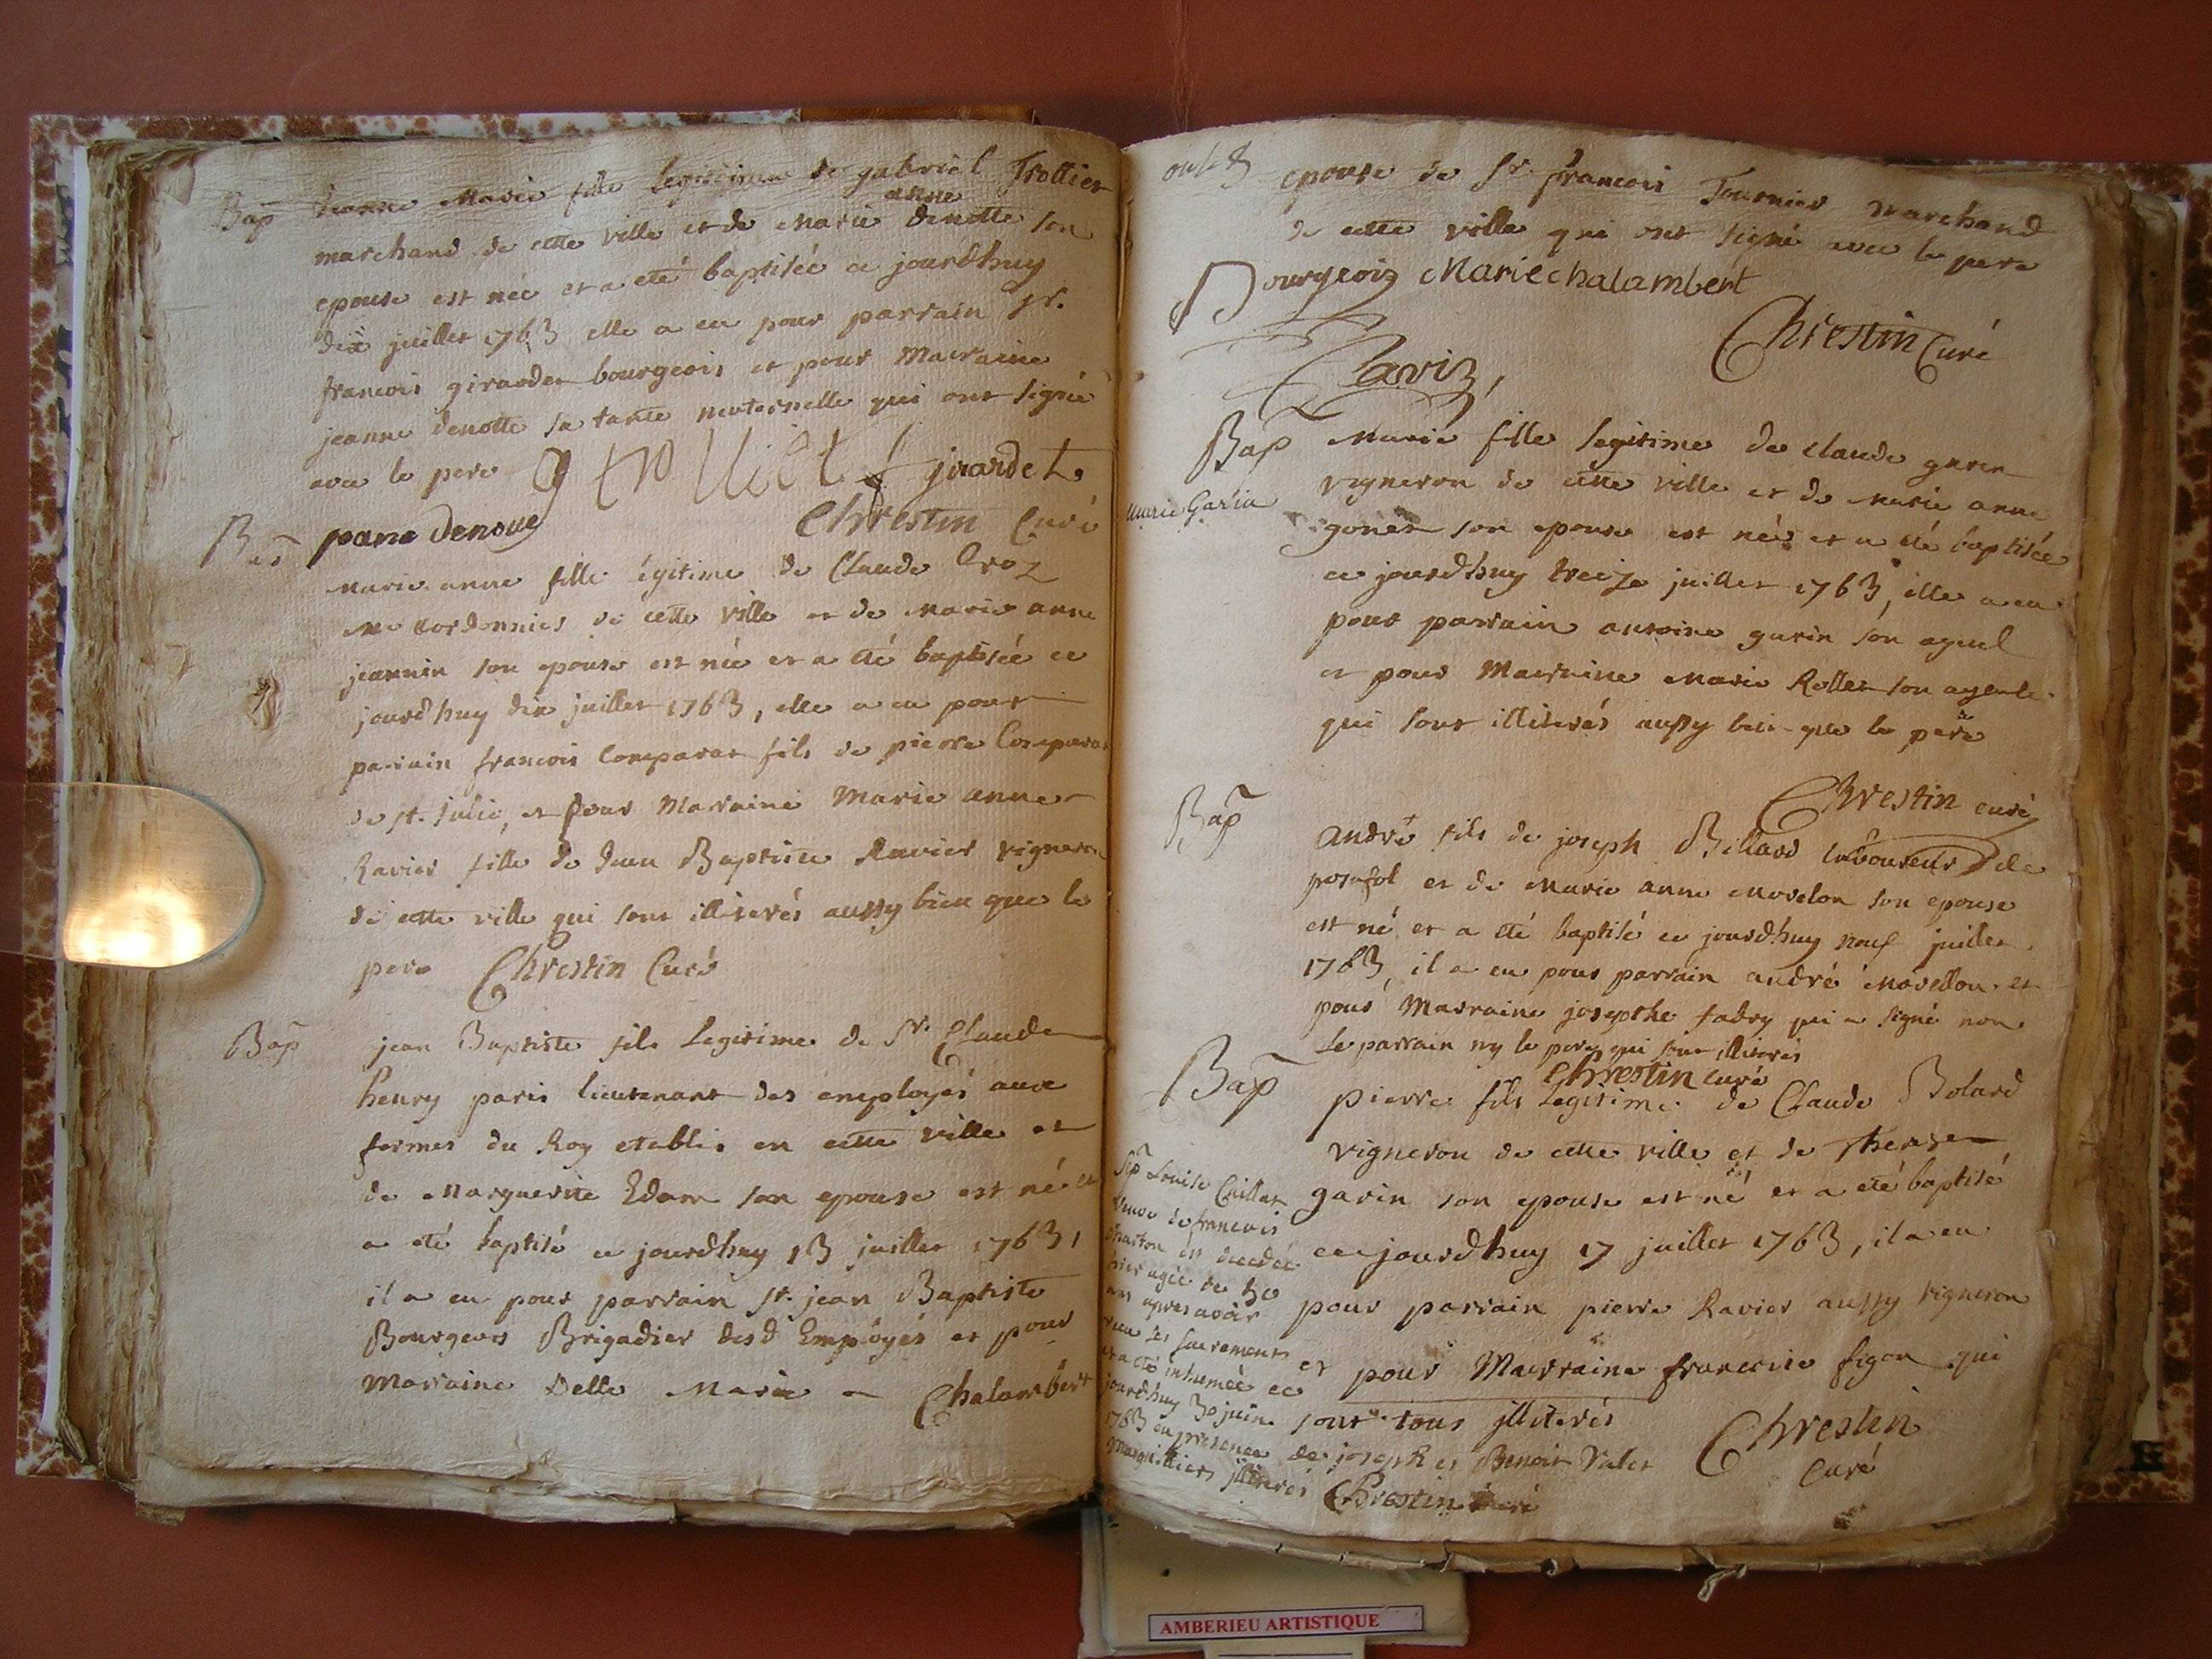 Bap Jeanne Marie fille legitime de gabriel Trollier
marchand de cette ville et de Marie anne denotte son
epouse est née et a eté baptisée ce jourdhuy
dix juillet 1763 elle a eu pour parrain Sr.
francois girardet bourgeois et pour Marraine
jeanne denotte sa tante maternelle qui ont signé
avec le pere
Chrestin Curé
Marie anne fille legitime de Claude Croz
Me cordonnier de cette ville et de Marie anne
jeannin son epouse est née et a eté baptisée ce
jourdhuy dix juillet 1763, elle a eu pour
parrain francois Comparat fils de pierre Comparat
de st. julie, et pour Marraine Marie anne
Ravier fille de Jean Baptiste Ravier vigneron
de cette ville qui sont illiterés aussy bien que le
pere Chrestin Curé
Bap jean Baptiste fils Legitime de Sr. Claude
henry paris lieutenant des employés aux
fermes du Roy etabli en cette ville et
de Marguerite Edam son epouse est né et
a eté baptisé ce jourdhuy 13 juillet 1763,
il a eu pour parrain Sr. jean Baptiste
Bourgeois Brigadier desd Employés et pour
Marraine Delle Marie Chalambert
epouse de Sr. francois Tournier Marchand
de cette ville qui ont signé avec le pere
Bourgeois Marie chalambert
Chrestin Curé
Bap Marie fille legitime de claude garin
Marie Garin
vigneron de cette ville et de Marie anne
son epouse est née et a eté baptisée
ce jourdhuy treize juillet 1763, elle a eu
pour parrain antoine garin son ayeul
et pour Marraine Marie Rollet son ayeule
qui sont illiterés aussy bien que le pere
Chrestin curé
Bap andré fils de joseph Billard laboureur de
et de Marie anne Morelon son epouse
est né et a eté baptisé ce jourdhuy neuf juillet
1763, il a eu pour parrain andré et
pour Marraine josepthe fabry qui a signé non
Le parrain ny le pere qui sont illiterés
Chrestin curé
Bap pierre fils Legitime de Claude Bolard
vigneron de cette ville et de Therese
garin son epouse est né et a eté baptisé
ce jourdhuy 17 juillet 1763, il a eu
pour parrain pierre Ravier aussy vigneron
et pour Marraine francoise figon qui
sont tous illiterés
Chrestin
Curé
Sep Louise Caillat
veuve de francois
est decedée
hier agée de 80
ans apres avoir
recu les sacrements
et a eté inhumée ce
jourdhuy 30 juin
1763 en presence de joseph et Benoit Valet
Marguilliers illiterés Chrestin Curé
AMBERIEU ARTISTIQUE